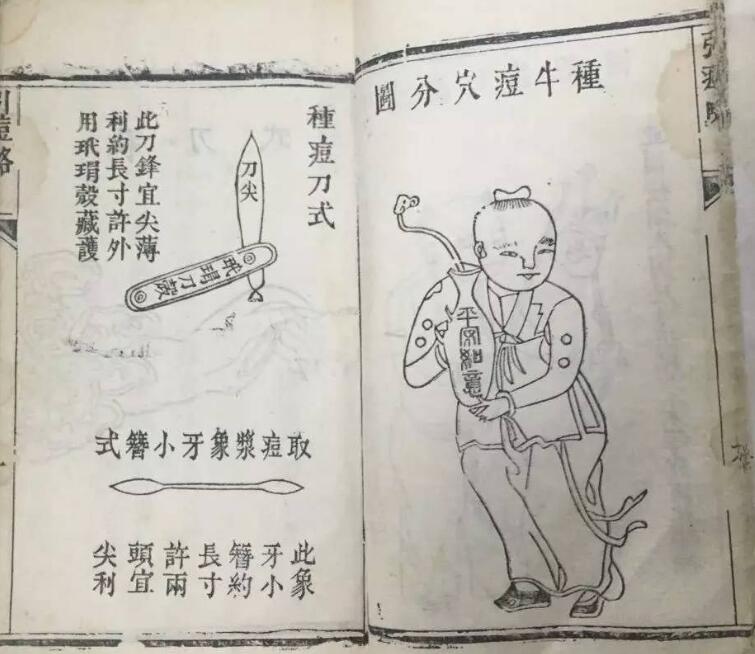 種牛痘穴分圖
平安如意
種痘刀式
刀尖
玳瑁刀殼
此刀鋒宜尖薄
利約長寸許外
用玳瑁殼藏護
取痘漿象牙小簪式
此象
牙小
簪約
長寸
許兩
頭宜
尖利
痘略